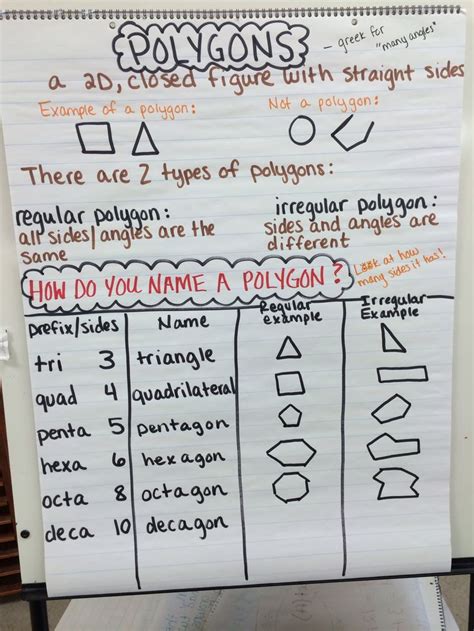 POLYGONS
– greek for
"many angles"
a 2D, closed figure with straight sides
Example of a polygon:
Not a polygon:
There are 2 types of polygons:
regular polygon:
all sides/angles are the
same
irregular polygon:
sides and angles are
different
HOW DO YOU NAME A POLYGON?
Look at how
many sides it has!
Prefix/sides
Name
Regular
example
Irregular
Example
tri 3 triangle
quad 4 quadrilateral
penta 5 pentagon
hexa 6 hexagon
octa 8 octagon
deca 10 decagon